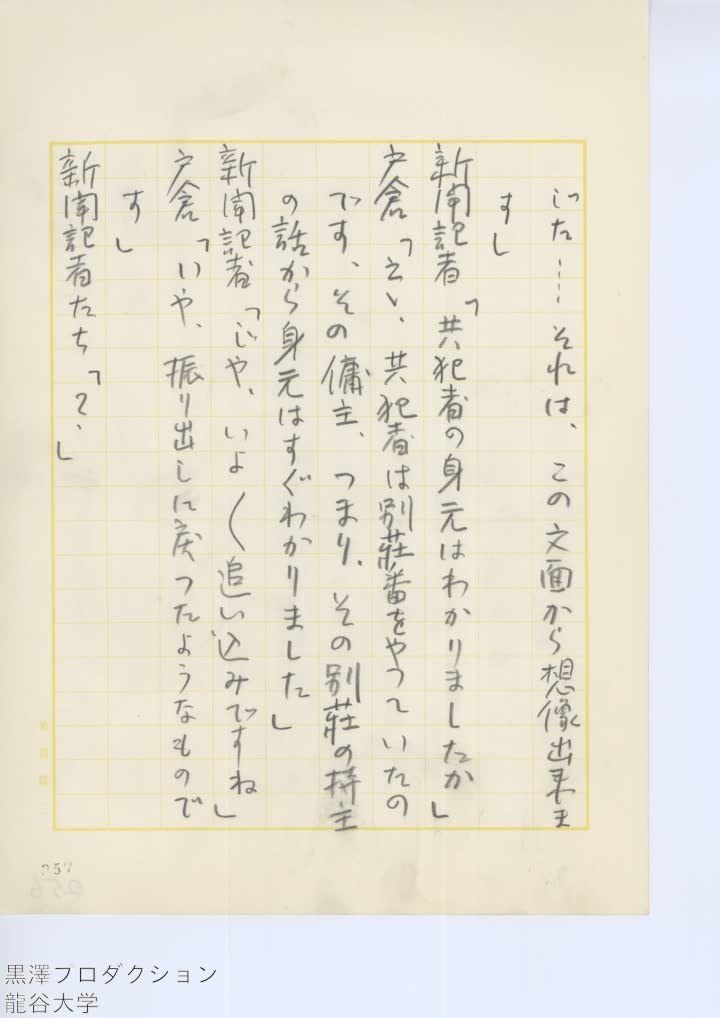 じた……それは、この文面から想像出来ま
す」
新聞記者「共犯者の身元はわかりましたか」
戸倉「えゝ、共犯者は別荘番をやっていたの
です、その傭主、つまり、その別荘の持主
の話から身元はすぐわかりました」
新聞記者「じや、いよ〱追い込みですね」
戸倉「いや、振り出しに戻つたようなもので
す」
新聞記者たち「？」
257
黒澤プロダクション
龍谷大学